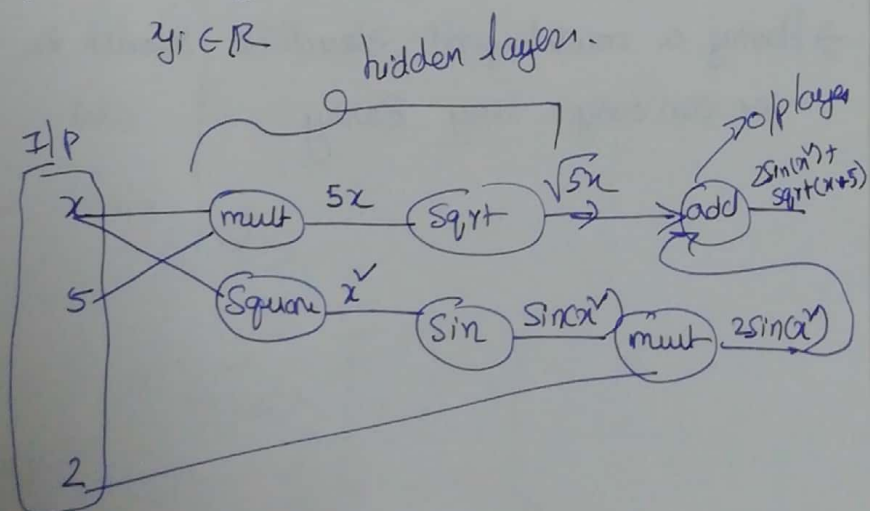 yi ∈ R
hidden layers.
I/P
o/player
x
mult
5x
Sqrt
√5x
add
2sin(x²)+
sqrt(x+5)
5
Square
x²
Sin
Sin(x²)
mult
2sin(x²)
2